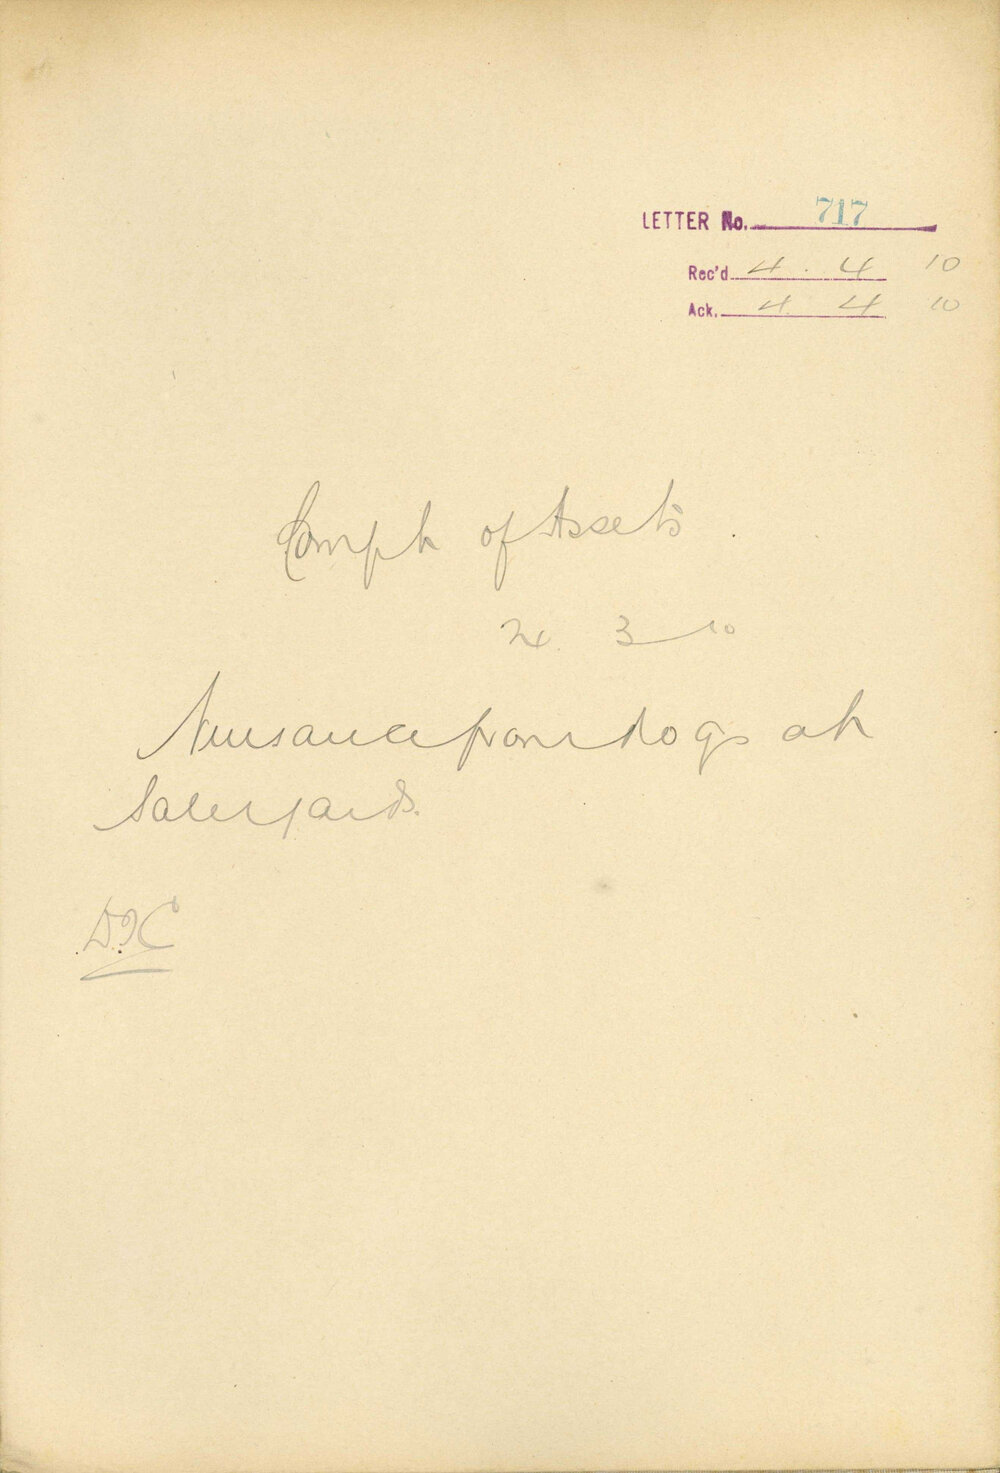 LETTER No. 717
Rec'd 4. 4 10
Ack. 4. 4 10
Compt of Assets
3 10
Nuisance from dogs at
Saleyards.